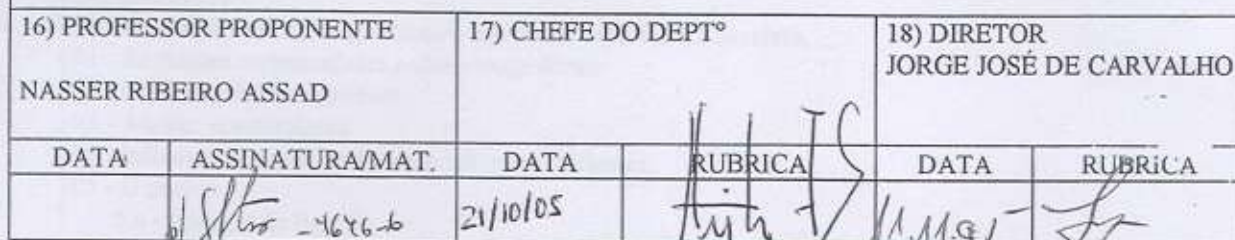 16) PROFESSOR PROPONENTE
NASSER RIBEIRO ASSAD
17) CHEFE DO DEPTº
18) DIRETOR
JORGE JOSÉ DE CARVALHO
DATA ASSINATURA/MAT. DATA RUBRICA DATA RUBRICA
-4646-6 21/10/05